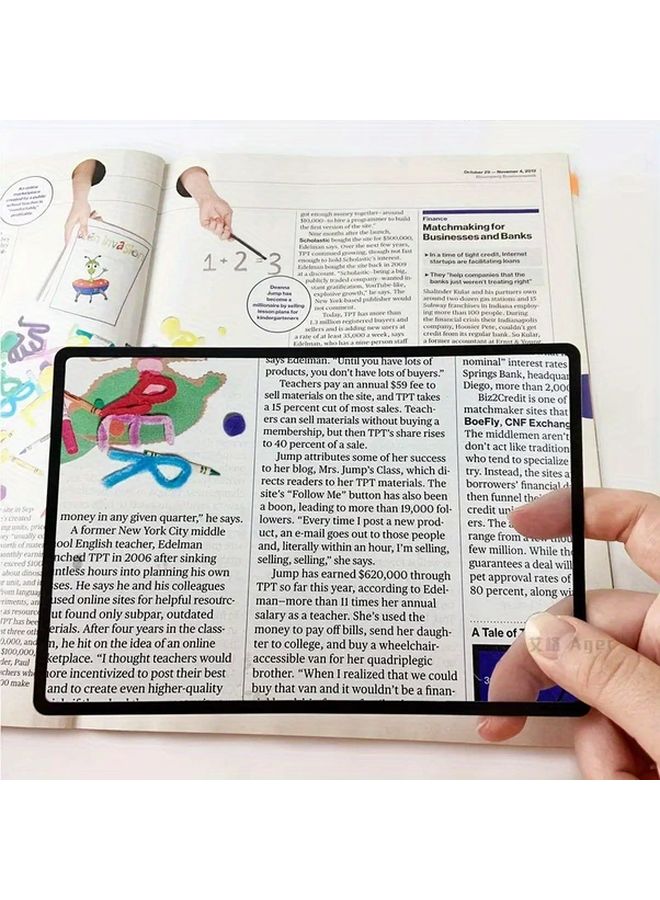 October 29 — November 4, 2012
Bloomberg Businessweek
An online
marketplace
created for a public
school teacher is
"comfortably"
profitable.
invasion
1 + 2 = 3
Deanna
Jump has
become a
millionaire by selling
lesson plans for
kindergarteners
got enough money together—around
$10,000—to hire a programmer to build
the first version of the site."
Nine months after the launch,
Scholastic bought the site for $500,000,
Edelman says. Over the next few years,
TPT continued growing, though not fast
enough to hold Scholastic's interest.
Edelman bought the site back in 2009
at a discount. "Scholastic—being a big,
publicly traded company—wanted in-
stant gratification, YouTube-like,
explosive growth," he says. The
New York-based publisher would
not comment.
Today, TPT has more than
1.3 million registered buyers and
sellers and is adding new users at
a rate of at least 35,000 a week, says
Edelman, who has a nine-person staff
Finance
Matchmaking for
Businesses and Banks
In a time of tight credit, Internet
startups are facilitating loans
They "help companies that the
banks just weren't treating right"
Shalinder Kular and his partners own
around two dozen gas stations and 15
Subway franchises in Indiana employ-
ing more than 100 people. During
the financial crisis their Indianapolis
company, Hoosier Pete, couldn't get
credit from its regular bank. So Kular,
a former accountant at Ernst & Young
money in any given quarter," he says.
A former New York City middle
ool English teacher, Edelman
nched TPT in 2006 after sinking
ntless hours into planning his own
ses. He says he and his colleagues
used online sites for helpful resourc-
ut found only subpar, outdated
erials. After four years in the class-
m, he hit on the idea of an online
ketplace. "I thought teachers would
ore incentivized to post their best
and to create even higher-quality
says Edelman. "Until you have lots of
products, you don't have lots of buyers."
Teachers pay an annual $59 fee to
sell materials on the site, and TPT takes
a 15 percent cut of most sales. Teach-
ers can sell materials without buying a
membership, but then TPT's share rises
to 40 percent of a sale.
Jump attributes some of her success
to her blog, Mrs. Jump's Class, which di-
rects readers to her TPT materials. The
site's "Follow Me" button has also been
a boon, leading to more than 19,000 fol-
lowers. "Every time I post a new prod-
uct, an e-mail goes out to those people
and, literally within an hour, I'm selling,
selling, selling," she says.
Jump has earned $620,000 through
TPT so far this year, according to Edel-
man—more than 11 times her annual
salary as a teacher. She's used the
money to pay off bills, send her daugh-
ter to college, and buy a wheelchair-
accessible van for her quadriplegic
brother. "When I realized that we could
buy that van and it wouldn't be a finan-
nominal" interest rates
Springs Bank, headquar
Diego, more than 2,000
Biz2Credit is one of
matchmaker sites that
BoeFly, CNF Exchang
The middlemen aren't
don't act like tradition
who tend to specialize
try. Instead, the sites a
borrowers' financial d
then funnel the
credit uni
ers. The a
range from a few thou
few million. While the
guarantees a deal will
pet approval rates of
80 percent, along wi
A Tale of T
Ager